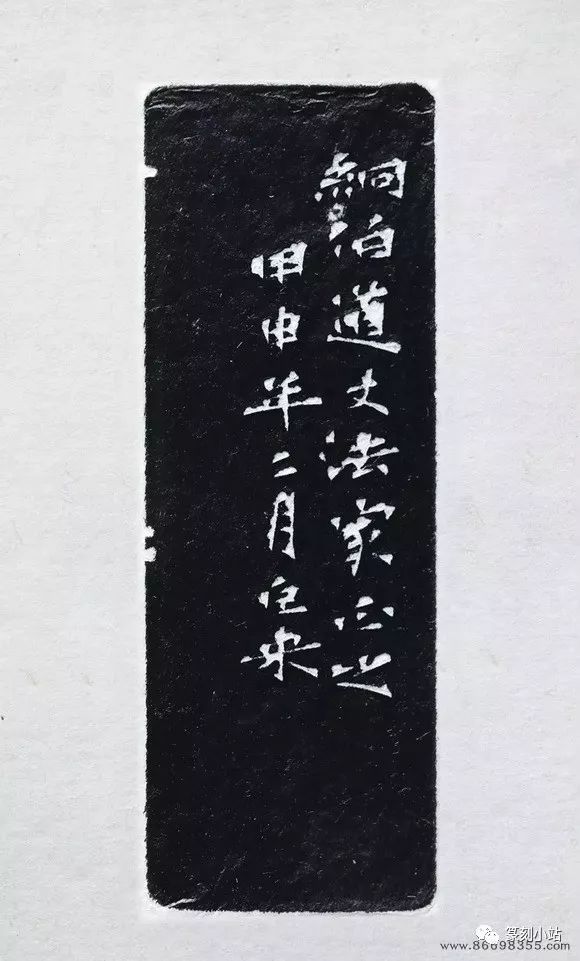 絅伯道丈法家正之
甲申年二月巨来
篆刻小站
www.86698355.com